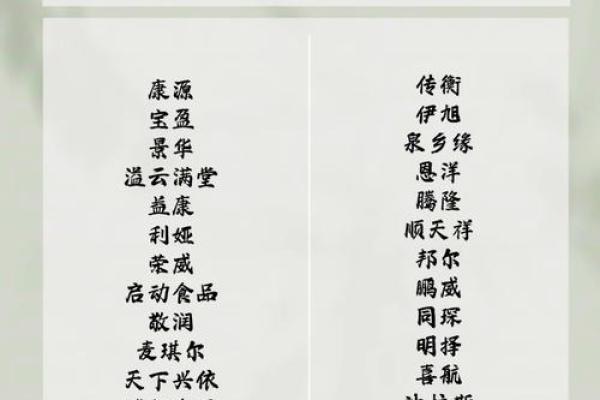 康源
宝盈
景华
溢云满堂
益康
利娅
荣威
启动食品
敬润
麦琪尔
天下兴依
传衡
伊旭
泉乡缘
恩洋
腾隆
顺天祥
邦尔
鹏威
同琛
明择
喜航